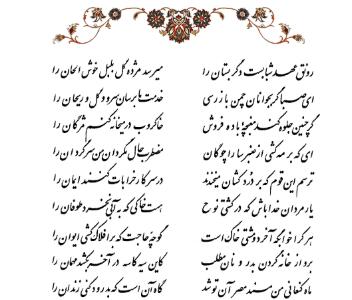 رونق عهد شبابست دگر بستان را میرسد مژده گل بلبل خوش الحان را
ای صبا گر بجوانان چمن بازرسی خدمت ما برسان سرو و گل و ریحان را
گر چنین جلوه کند مغبچه باده فروش خاکروب در میخانه کنم مژگان را
ای که بر مه کشی از عنبر سارا چوگان مضطرب حال مگردان من سرگردان را
ترسم این قوم که بر دردکشان میخندند در سر کار خرابات کنند ایمان را
یار مردان خدا باش که در کشتی نوح هست خاکی که به آبی نخرد طوفان را
هر کرا خوابگه آخر دو مشتی خاک است گو چه حاجت که بر افلاک کشی ایوان را
برو از خانه گردون بدر و نان مطلب کاین سیه کاسه در آخر بکشد مهمان را
ماه کنعانی من مسند مصر آن تو شد گاه آن است که بدرود کنی زندان را